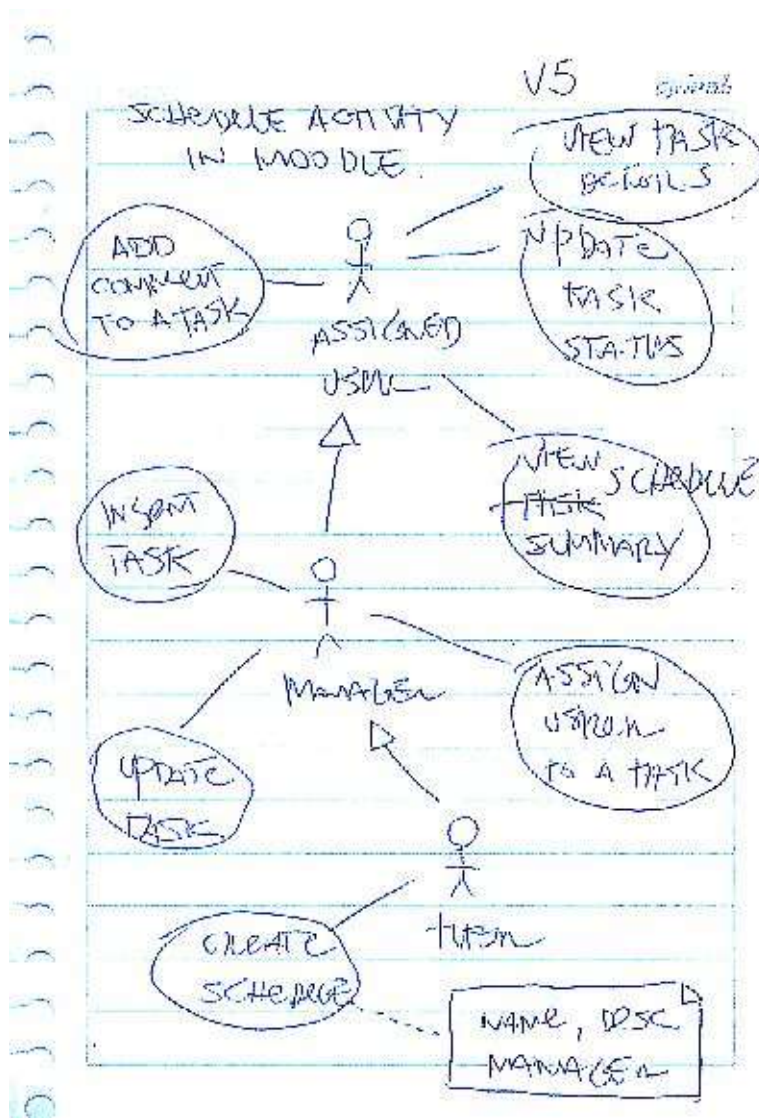 V5
SCHEDULE ACTIVITY
IN MOODLE
VIEW TASK
DETAILS
UPDATE
TASK
STATUS
ADD
COMMENT
TO A TASK
ASSIGNED
USER
VIEW SCHEDULE
TASK
SUMMARY
INSERT
TASK
MANAGER
ASSIGN
USER
TO A TASK
UPDATE
TASK
CREATE
SCHEDULE
NAME, DESC
MANAGER